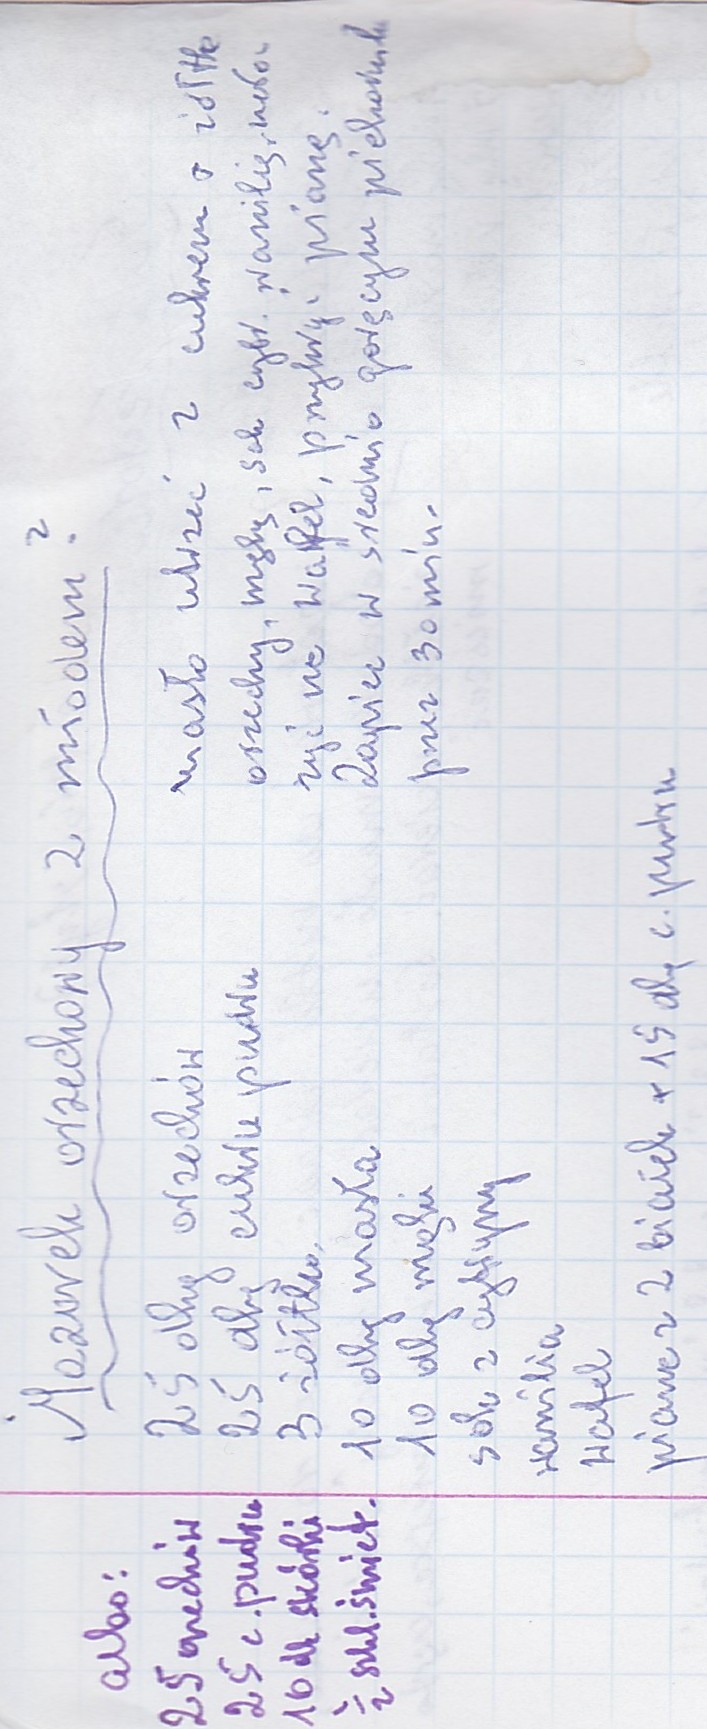 Mazurek orzechowy z miodem?
albo:
25 orzechów
25 c. pudru
10 dk skórki
1/2 szkl. śmiet.
25 dkg orzechów
25 dkg cukru pudru
3 żółtka
10 dkg masła
10 dkg mąki
sok z cytryny
wanilia
wafel
piana z 2 białek + 15 dkg c. pudru
masło utrzeć z cukrem + żółtka
orzechy, mąkę, sok cytr. wanilię, nało-
żyć na wafel, przykryć pianą.
Zapiec w średnio gorącym piekarniku
przez 30 min.